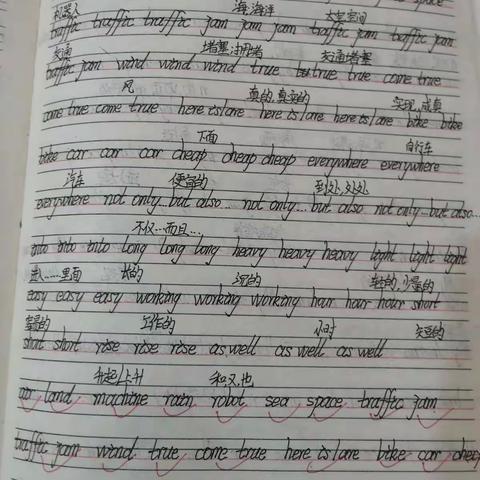 机器人 海,海洋 太空空间
traffic traffic traffic jam jam jam traffic jam traffic jam
交通 堵塞,
traffic jam wind wind wind true true true come true
风 真的,真实的 实现,成真
come true come true here is/are here is/are here is/are bike bike
下面 自行车
bike car car car cheap cheap cheap everywhere everywhere
汽车 便宜的 到处,处处
everywhere not only...but also... not only...but also not only...but also...
不仅...而且...
into into into long long long heavy heavy heavy light light light
进入......里面 长的 沉的 轻的,少量的
easy easy easy working working working hour hour hour short
容易的 工作的 小时
short short rise rise rise as well as well as well
升起/上升 和,又,也
air land machine rain robot sea space traffic jam
traffic jam wind true come true here is/are bike car cheap